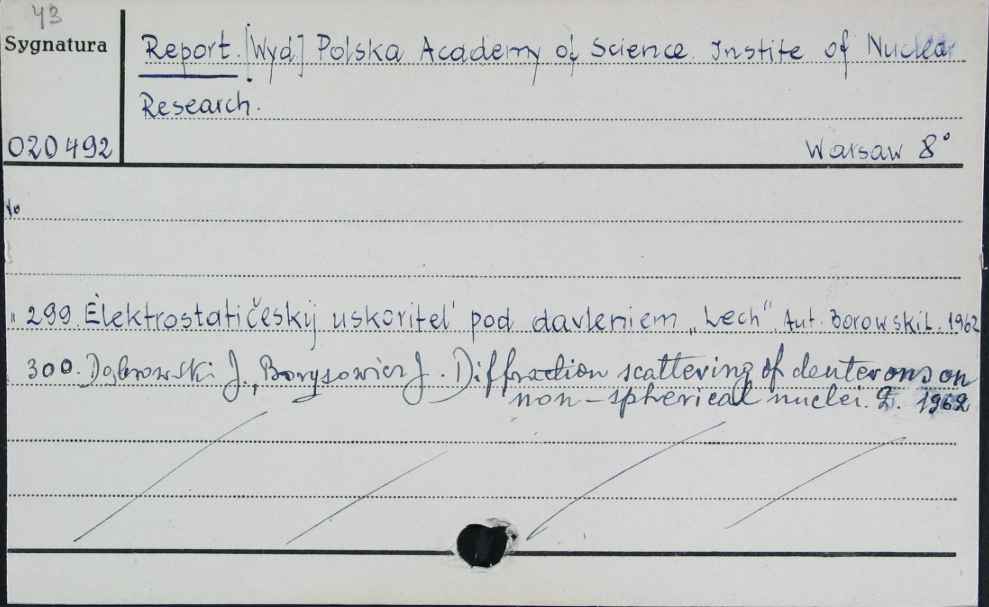 43
Sygnatura
Report. [Wyd] Polska Academy of Science. Instite of Nuclear
Research.
020492
Warsaw 8°
to
" 299. Èlektrostatičeskij uskoritel' pod davleniem „Lech" Aut. Borowski L. 1962
300. Dąbrowski J., Borysowicz J. Diffraction scattering of deuterons on
non-spherical nuclei. 2. 1962